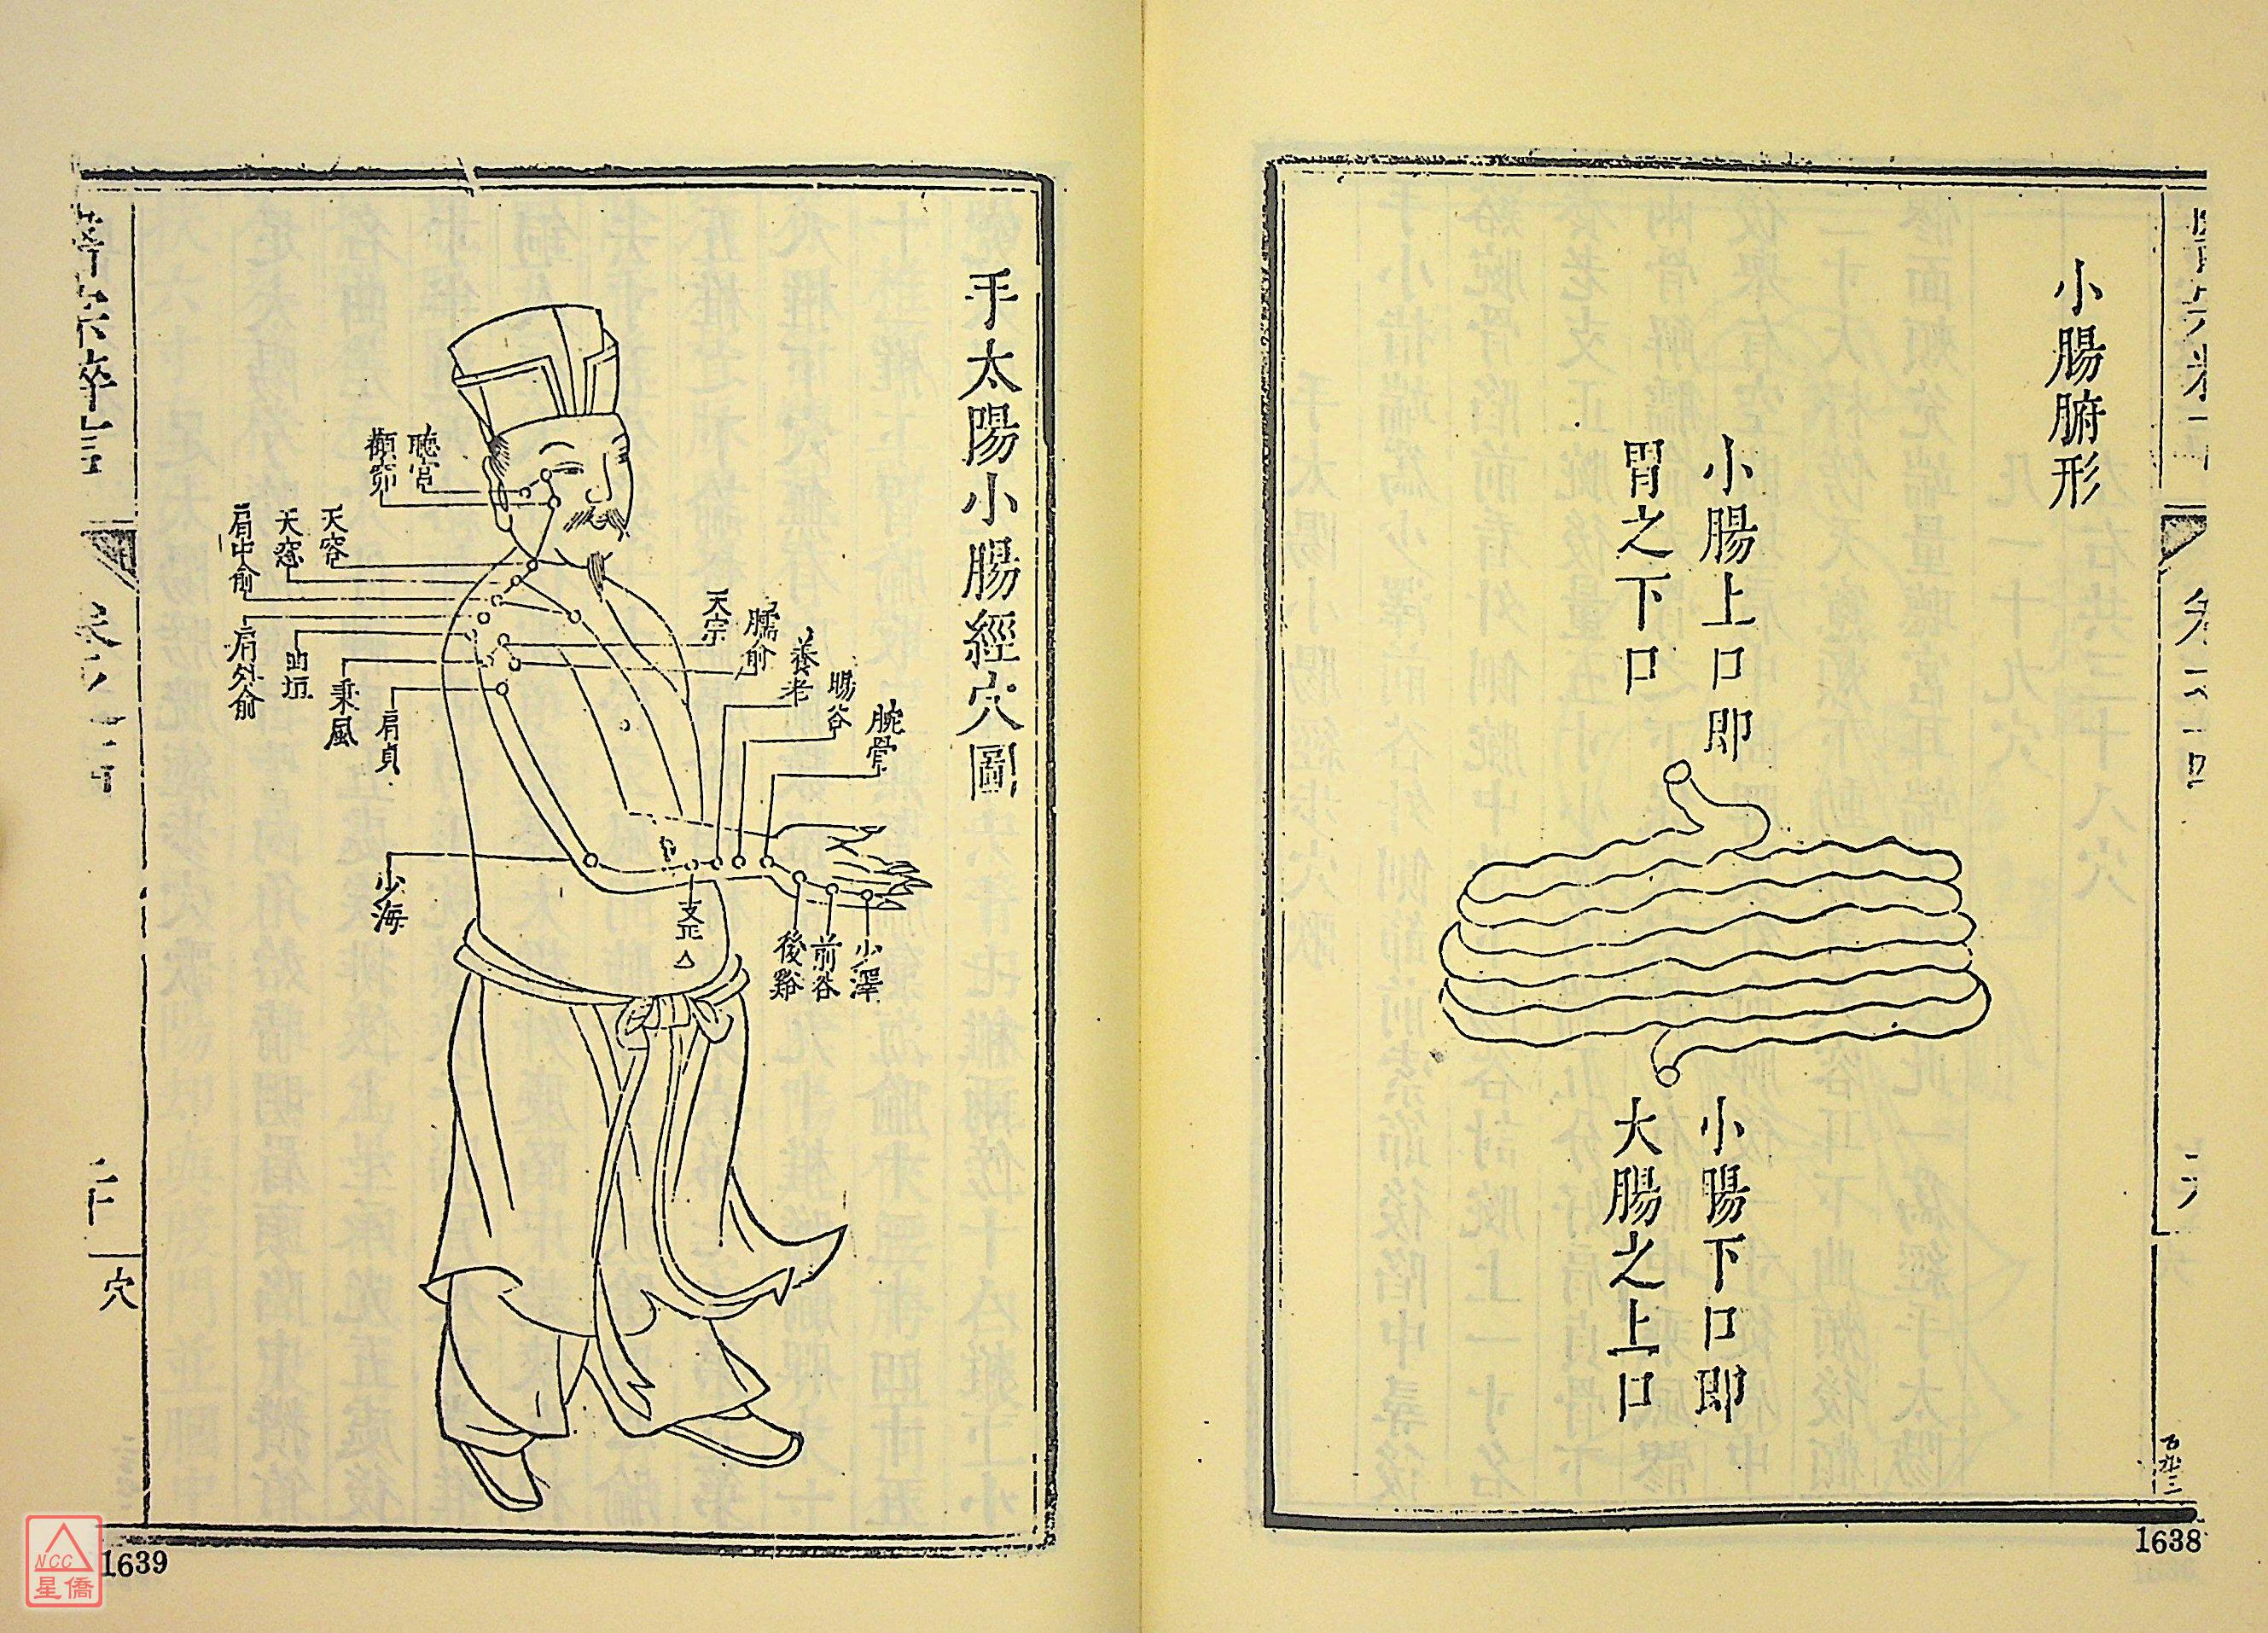 小腸腑形
小腸上口即
胃之下口
小腸下口即
大腸之上口
1638
手太陽小腸經穴圖
聽宮
顴窌
天容
天窓
肩中俞
肩外俞
曲垣
秉風
肩貞
天宗
臑俞
養老
陽谷
腕骨
少海
支正
後谿
前谷
少澤
穴
1639
NCC
星僑